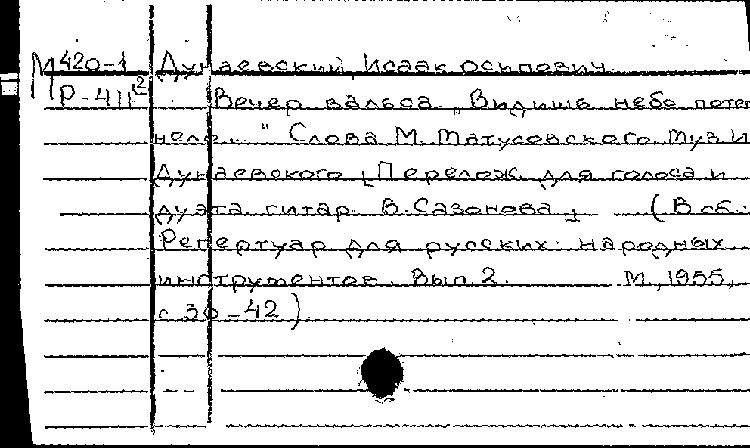 М 420-1 Дунаевский, Исаак Осипович.
Р-411² Вечер вальса „Видишь небо потем
нело..." Слова М. Матусовского. Муз И
Дунаевского [Перелож. для голоса и
дуэта гитар В. Сазонова] (В сб.:
Репертуар для русских народных
инструментов. Вып. 2. М., 1955,
с 30-42)